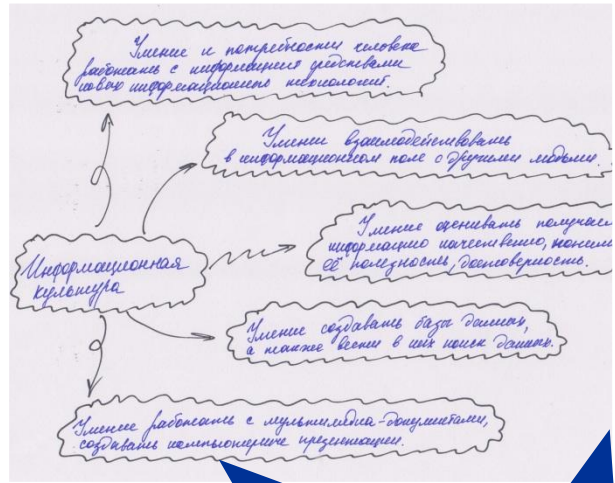 Умение и потребности человека
работать с информацией средствами
новых информационных технологий.
Умение взаимодействовать
в информационном поле с другими людьми.
Умение оценивать получаем
информацию качественно,
её полезность, достоверность.
Информационная
культура
Умение создавать базы данных,
а также вести в них поиск данных.
Умение работать с мультимедиа-документами,
создавать компьютерные презентации.